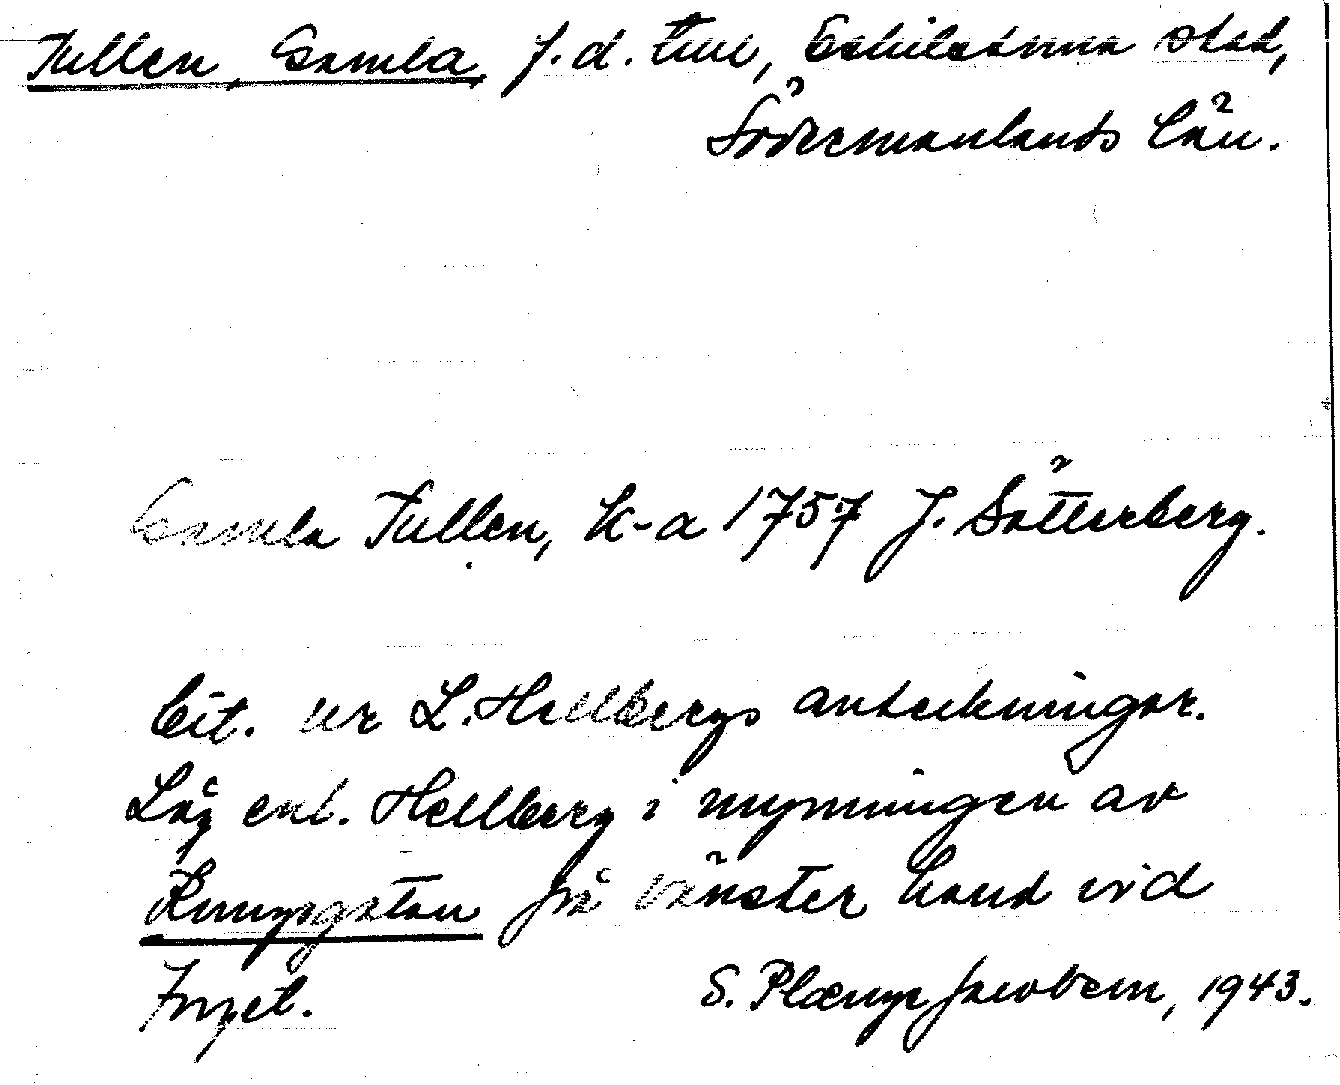 Tullen, Gamla, f.d. tull, Eskilstuna stad,
Södermanlands län.
Gamla Tullen, k-a 1757 J. Sätterberg.
Cit. ur L. Hellbergs anteckningar.
Låg enl. Hellberg i mynningen av
Kungsgatan på vänster hand vid
torget. S. Plænge Jacobson, 1943.